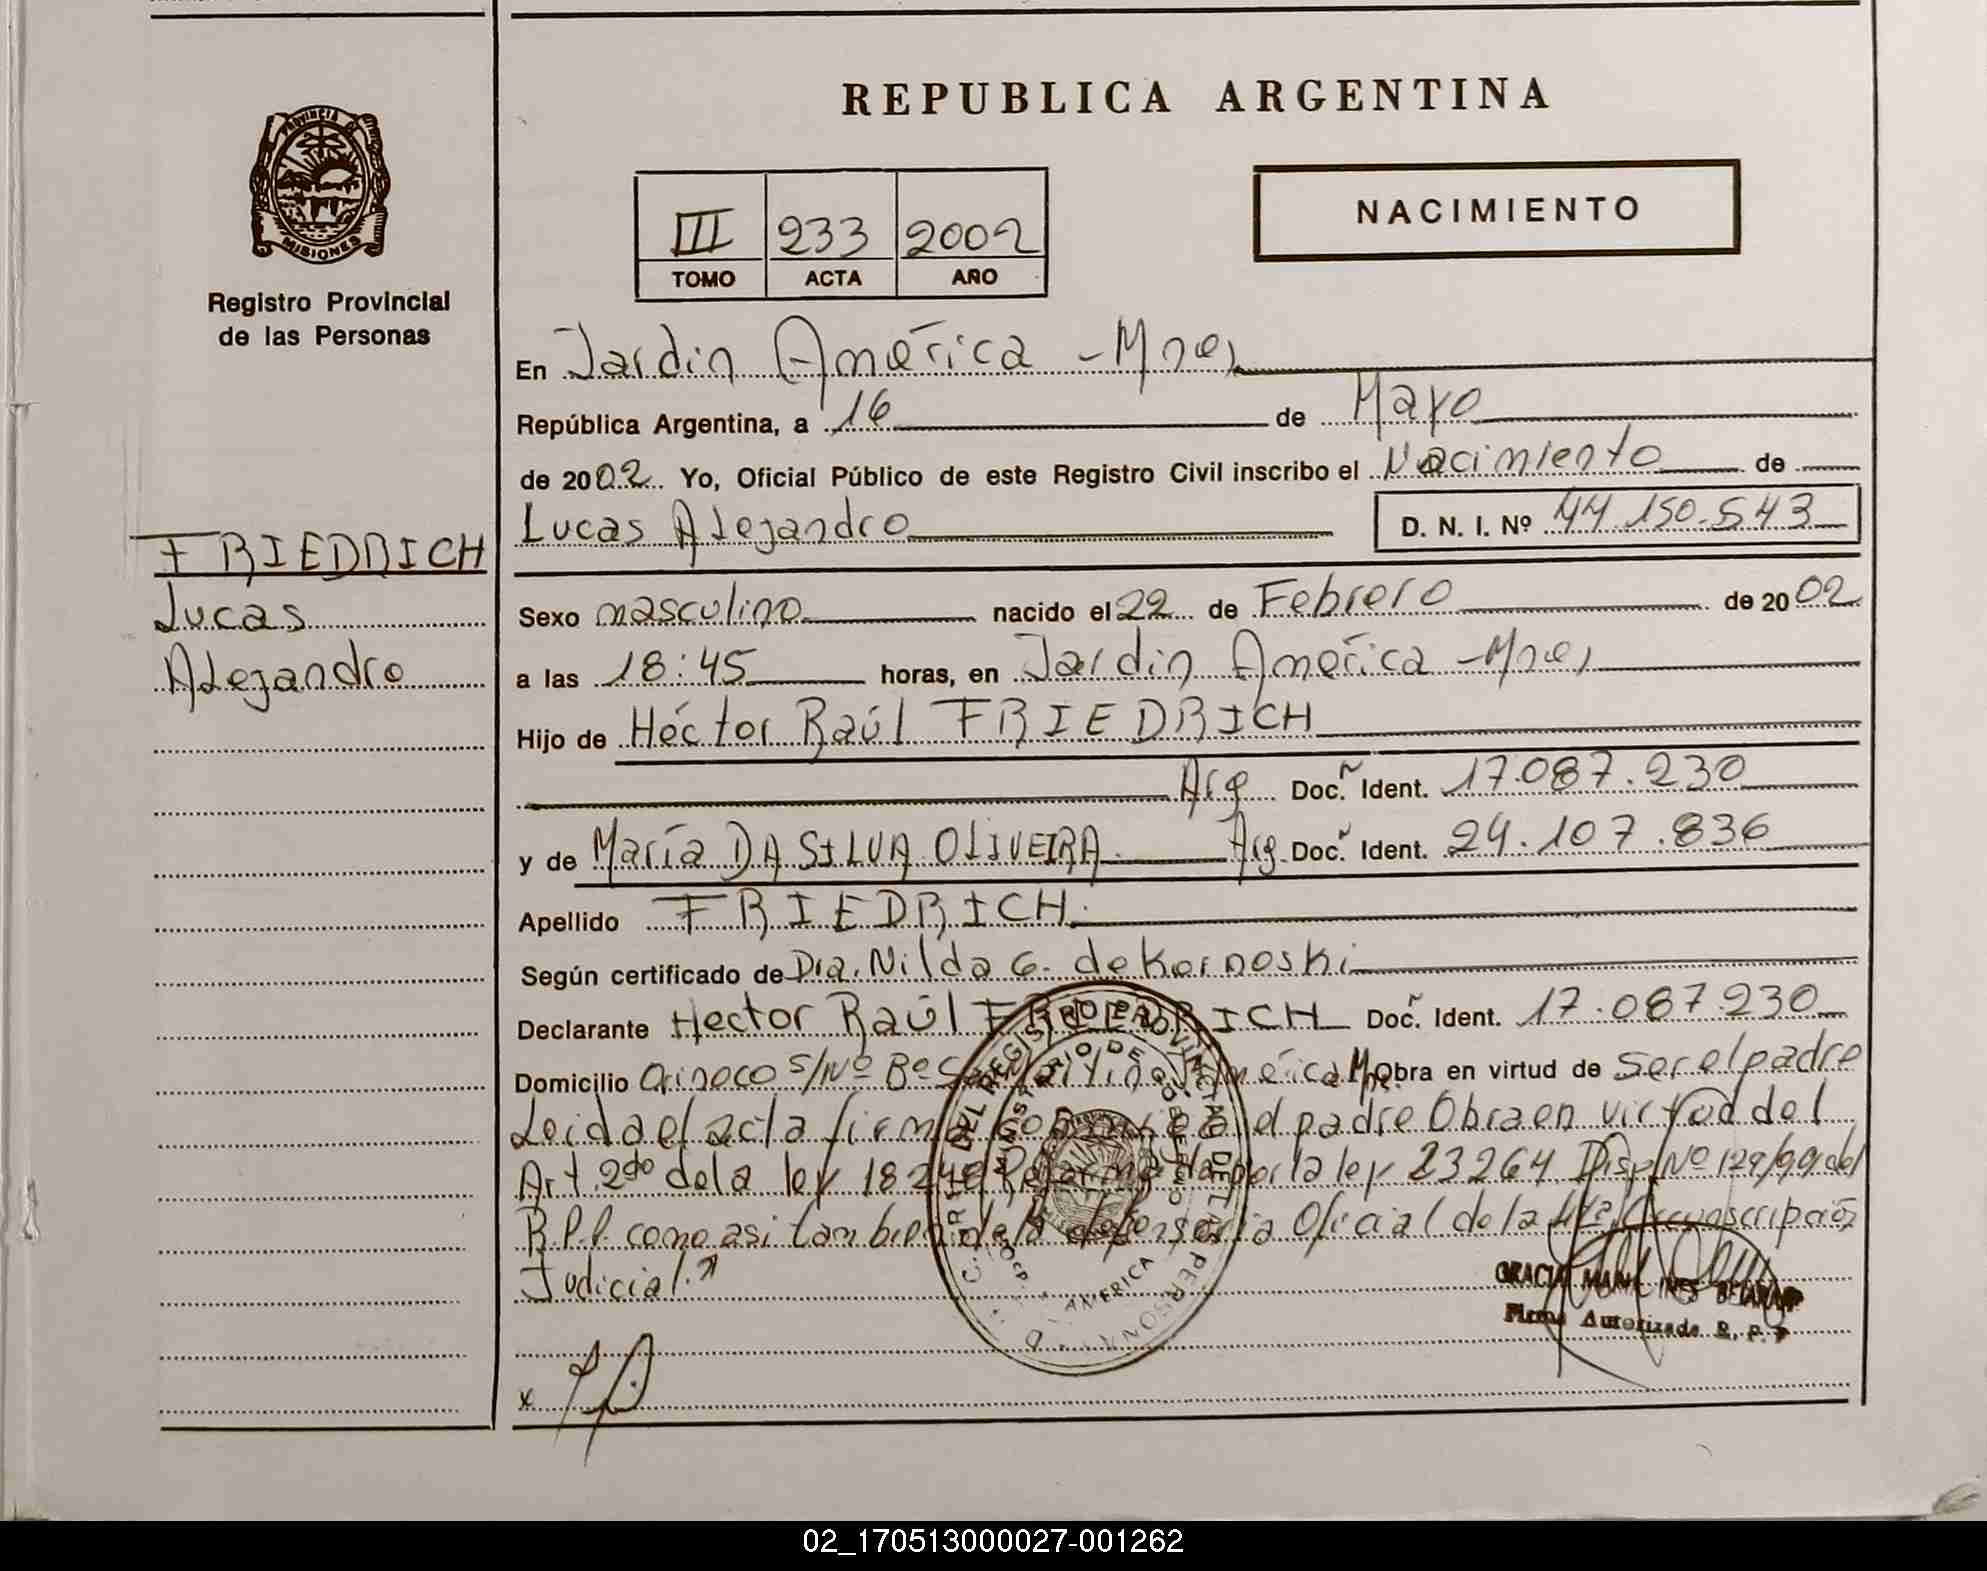 REPUBLICA ARGENTINA
PROVINCIA DE
MISIONES
Registro Provincial
de las Personas
III 233 2002
TOMO ACTA AÑO
NACIMIENTO
En Jardin América - Mnes
República Argentina, a 16 de Mayo
de 2002 Yo, Oficial Público de este Registro Civil inscribo el Nacimiento de
Lucas Alejandro D. N. I. Nº 44.150.543
FRIEDRICH
Lucas
Alejandro
Sexo masculino nacido el 22 de Febrero de 2002
a las 18:45 horas, en Jardin América - Mnes
Hijo de Héctor Raúl FRIEDRICH
Arg Doc. Ident. 17.087.230
y de María DA SILVA OLIVEIRA Arg. Doc. Ident. 24.107.836
Apellido FRIEDRICH
Según certificado de Dra. Nilda G. de Kornoski
Declarante Hector Raúl FRIEDRICH Doc. Ident. 17.087.230
Domicilio Orinoco S/Nº Bº América Mnes Obra en virtud de ser el padre
Leida el acta firma el padre Obra en virtud del
Art. 2do de la ley 18248 Reformada por la ley 23264 Disp Nº 129/99 del
R.P.P. como asi tambien de la defensoria Oficial de la Circunscripción
Judicial.
GRACIA BEJARANO
Firma Autorizada R. P. P.
x
02_170513000027-001262